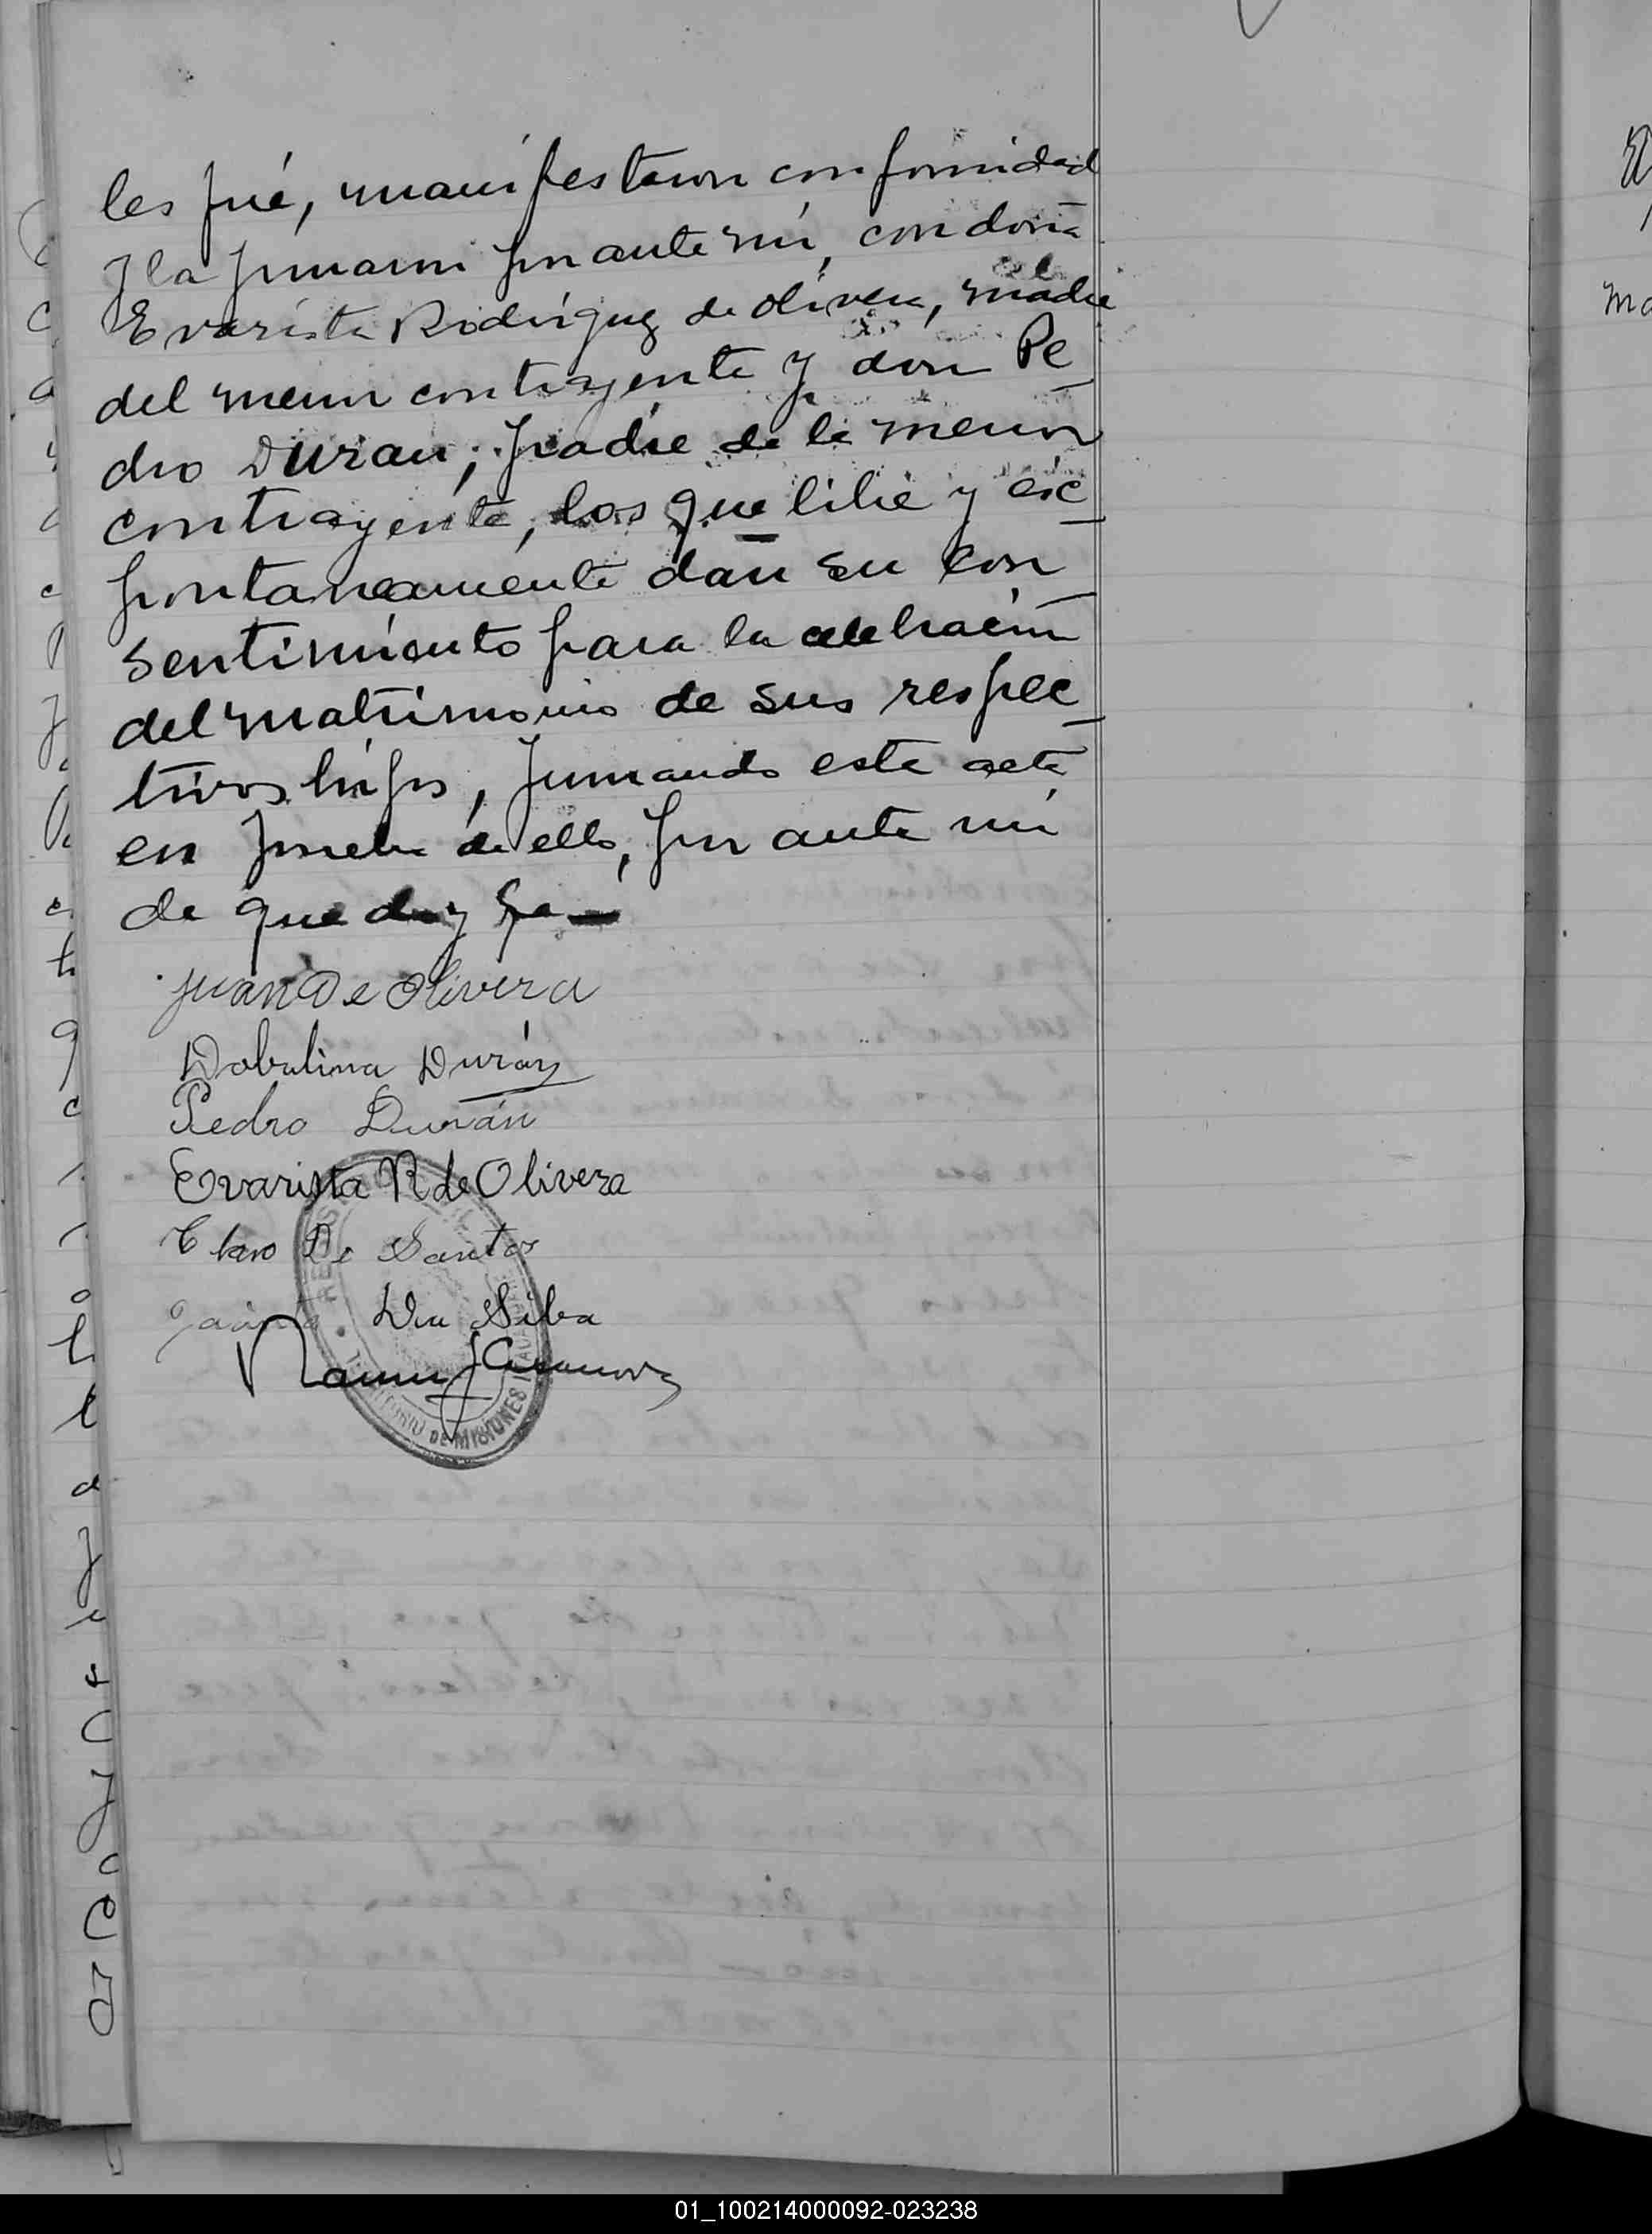 les fué, manifestaron conformidad
y la firmaron por ante mí, con doña
Evarista Rodríguez de Olivera, madre
del menor contrayente y don Pe
dro Durán, padre de la menor
contrayente, los que libre y esc
pontaneamente dan su con
sentimiento para la celebración
del matrimonio de sus respec
tivos hijos, firmando este acta
en prueba de ello, por ante mí
de que doy fe
Juan De Olivera
Dobalina Durán
Pedro Durán
Evarista R de Olivera
De Santos
Da Silva
Ramón Casanova
REGISTRO
TERRITORIO DE MISIONES
01_100214000092-023238